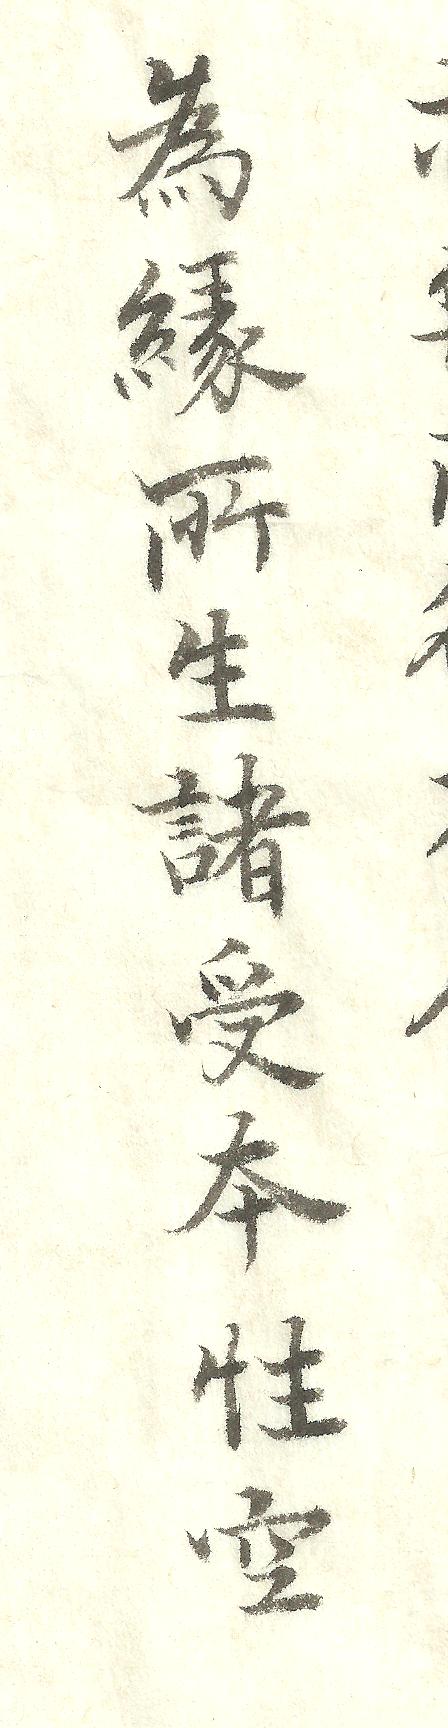 為緣所生諸受本性空